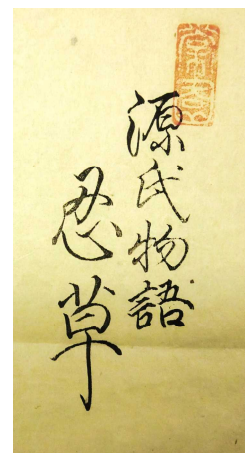 源氏物語
忍草